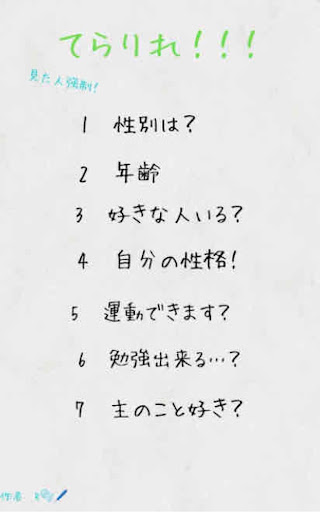 てらりれ!!!
見た人強制!
1 性別は?
2 年齢
3 好きな人いる?
4 自分の性格!
5 運動できます?
6 勉強出来る…?
7 主のこと好き?
作者